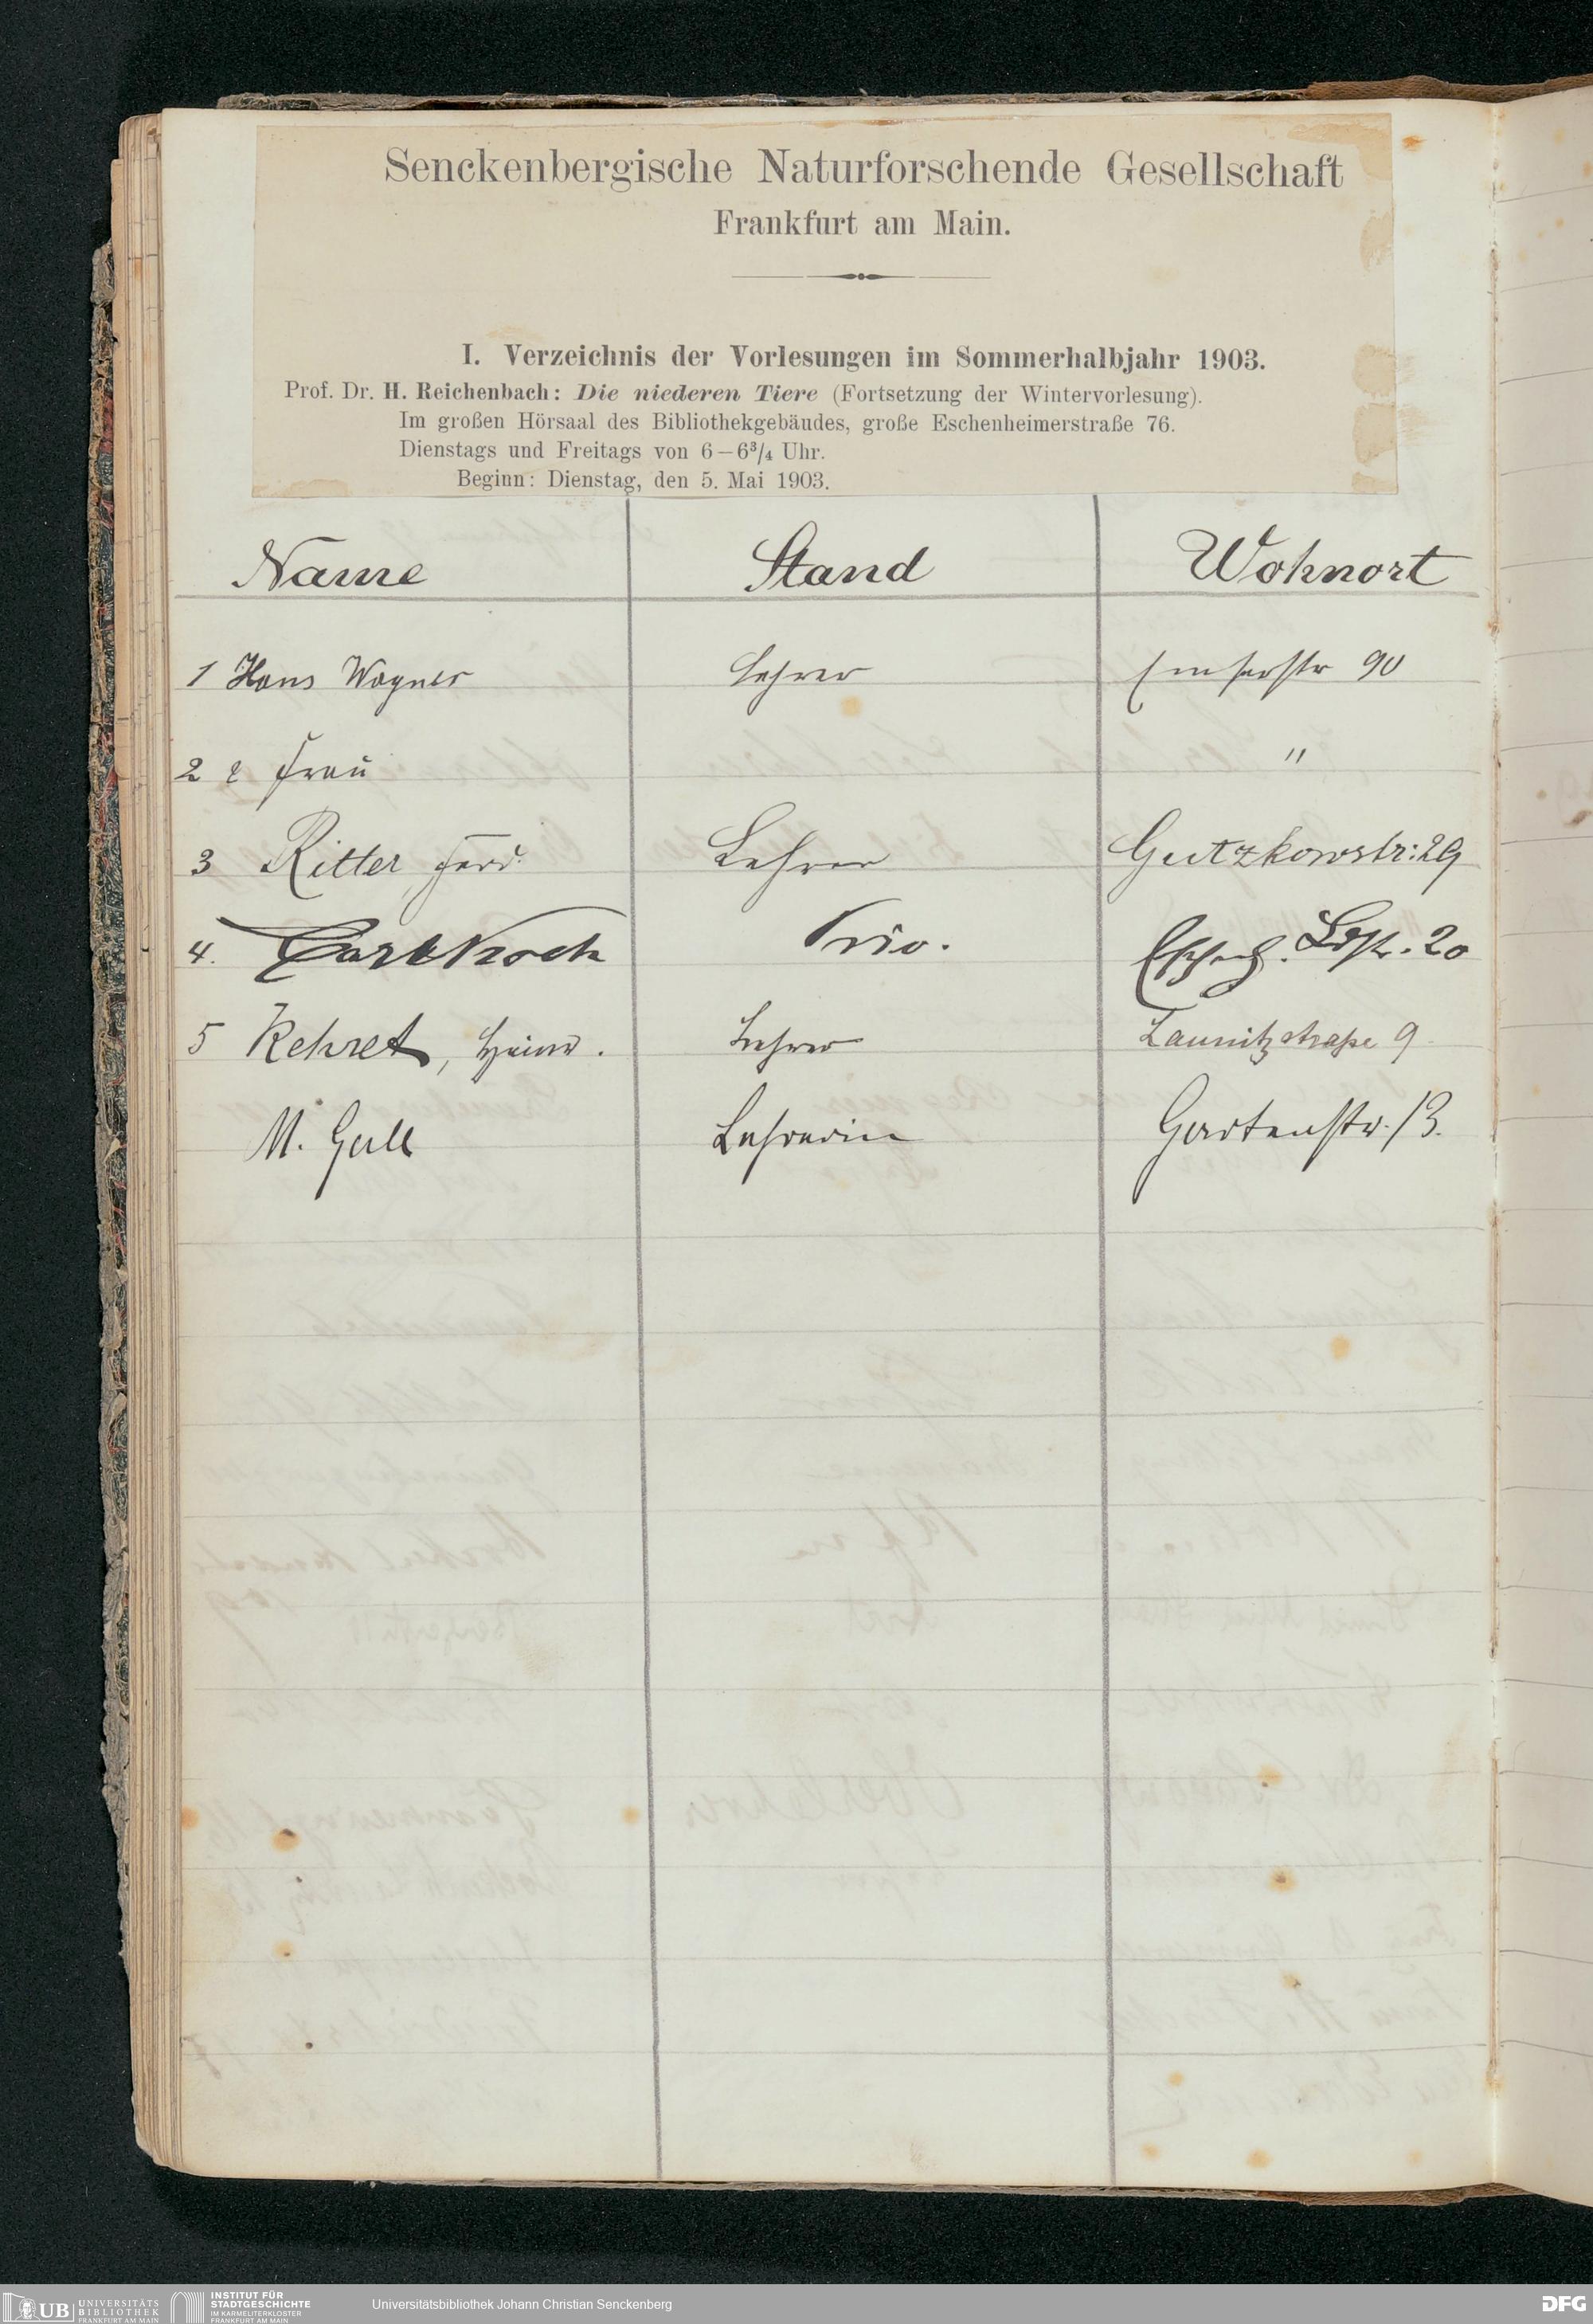 Senckenbergische Naturforschende Gesellschaft
Frankfurt am Main.
I. Verzeichnis der Vorlesungen im Sommerhalbjahr 1903.
Prof. Dr. H. Reichenbach: Die niederen Tiere (Fortsetzung der Wintervorlesung).
Im großen Hörsaal des Bibliothekgebäudes, große Eschenheimerstraße 76.
Dienstags und Freitags von 6–6¾ Uhr.
Beginn: Dienstag, den 5. Mai 1903.
Name Stand Wohnort
1 Hans Wagner Lehrer Emserstr 90
2 & Frau "
3 Ritter, Ferd. Lehrer Gutzkowstr: 29
4. Carl Koch Priv. Ldstr. 20
5 Kehret, Heinr. Lehrer Launitzstraße 9
M. Gall Lehrerin Gartenstr. 13.
UB UNIVERSITÄTS
BIBLIOTHEK
FRANKFURT AM MAIN
INSTITUT FÜR
STADTGESCHICHTE
IM KARMELITERKLOSTER
FRANKFURT AM MAIN
Universitätsbibliothek Johann Christian Senckenberg
DFG